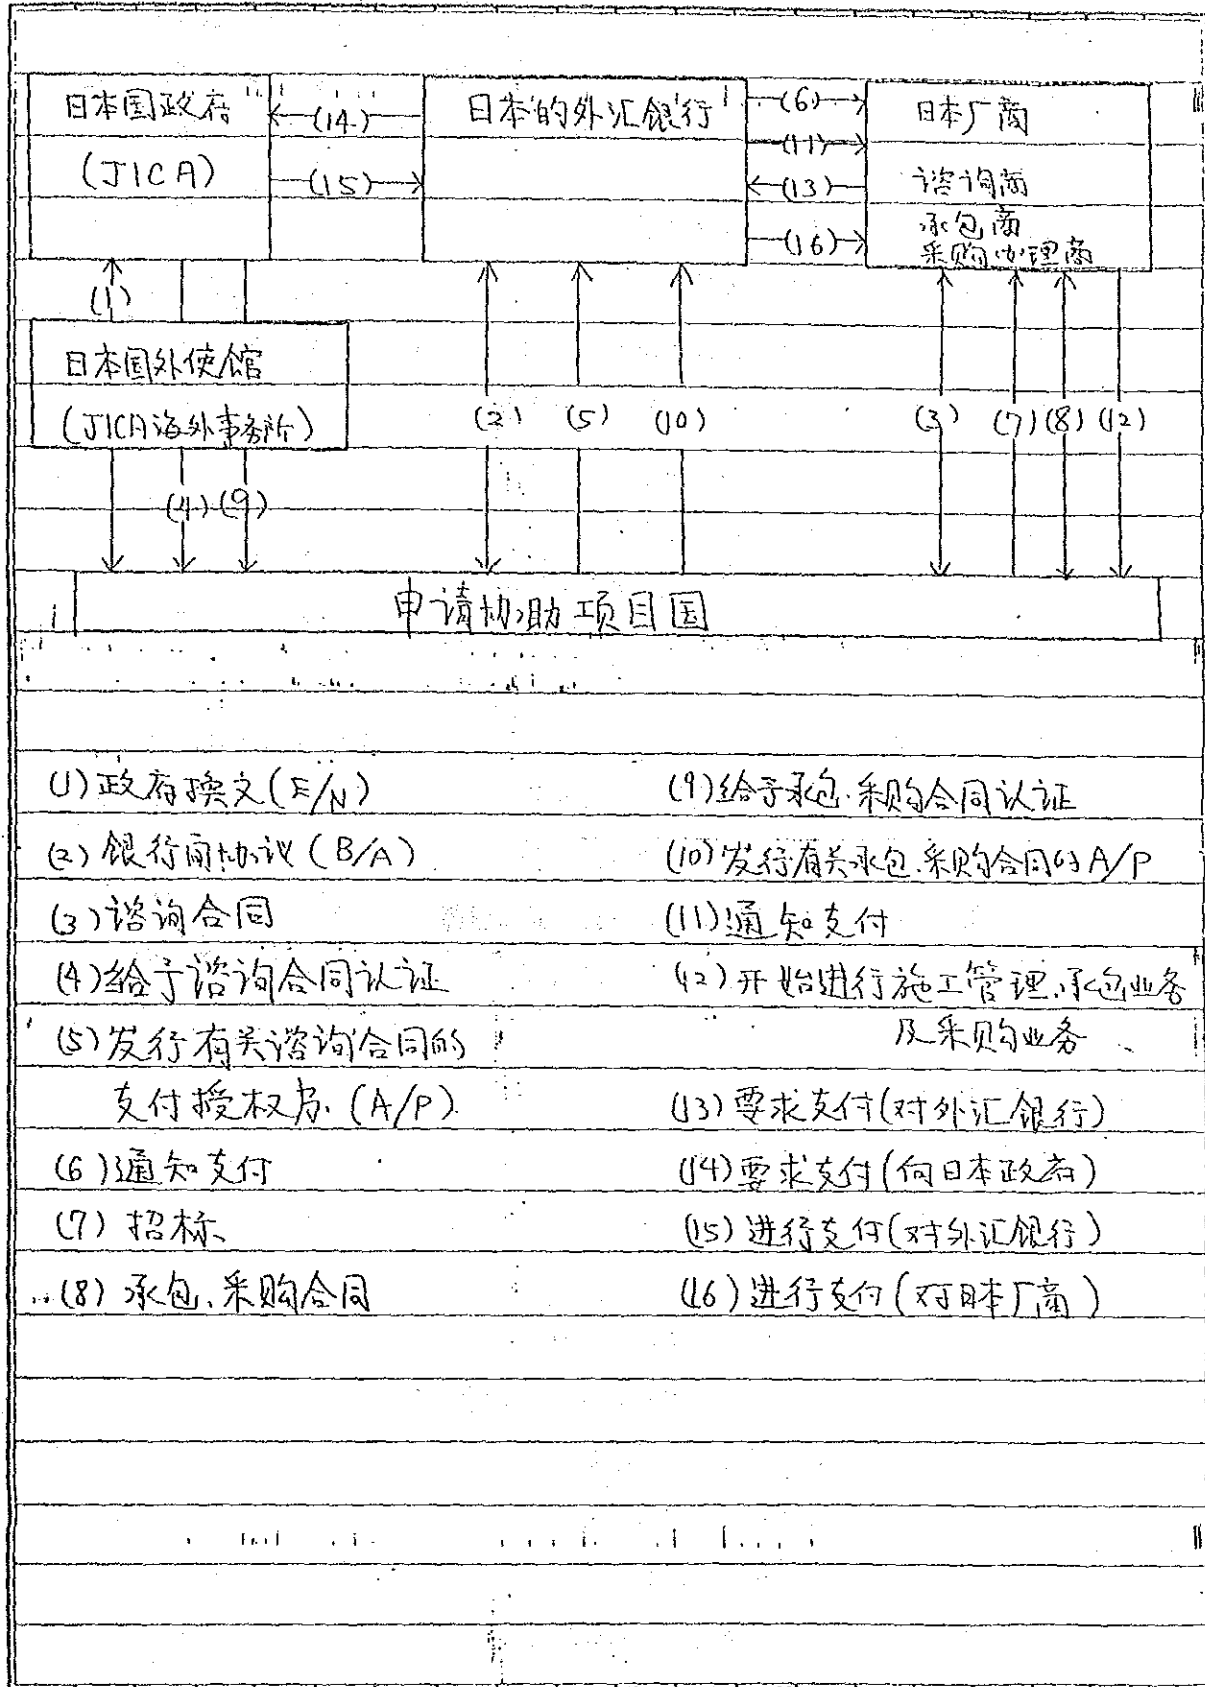 日本国政府
(JICA)
(14)
(15)
日本的外汇银行
(6)
(11)
(13)
(16)
日本厂商
谘询商
承包商
采购办理商
(1)
日本国外使馆
(JICA海外事务所)
(2) (5) (10) (3) (7) (8) (12)
(4) (9)
申请协助项目国
(1) 政府换文(E/N)
(2) 银行间协议(B/A)
(3) 谘询合同
(4) 给于谘询合同认证
(5) 发行有关谘询合同的
支付授权书 (A/P)
(6) 通知支付
(7) 招标
(8) 承包、采购合同
(9) 给予承包、采购合同认证
(10) 发行有关承包、采购合同的A/P
(11) 通知支付
(12) 开始进行施工管理、承包业务
及采购业务
(13) 要求支付(对外汇银行)
(14) 要求支付(向日本政府)
(15) 进行支付(对外汇银行)
(16) 进行支付(对日本厂商)